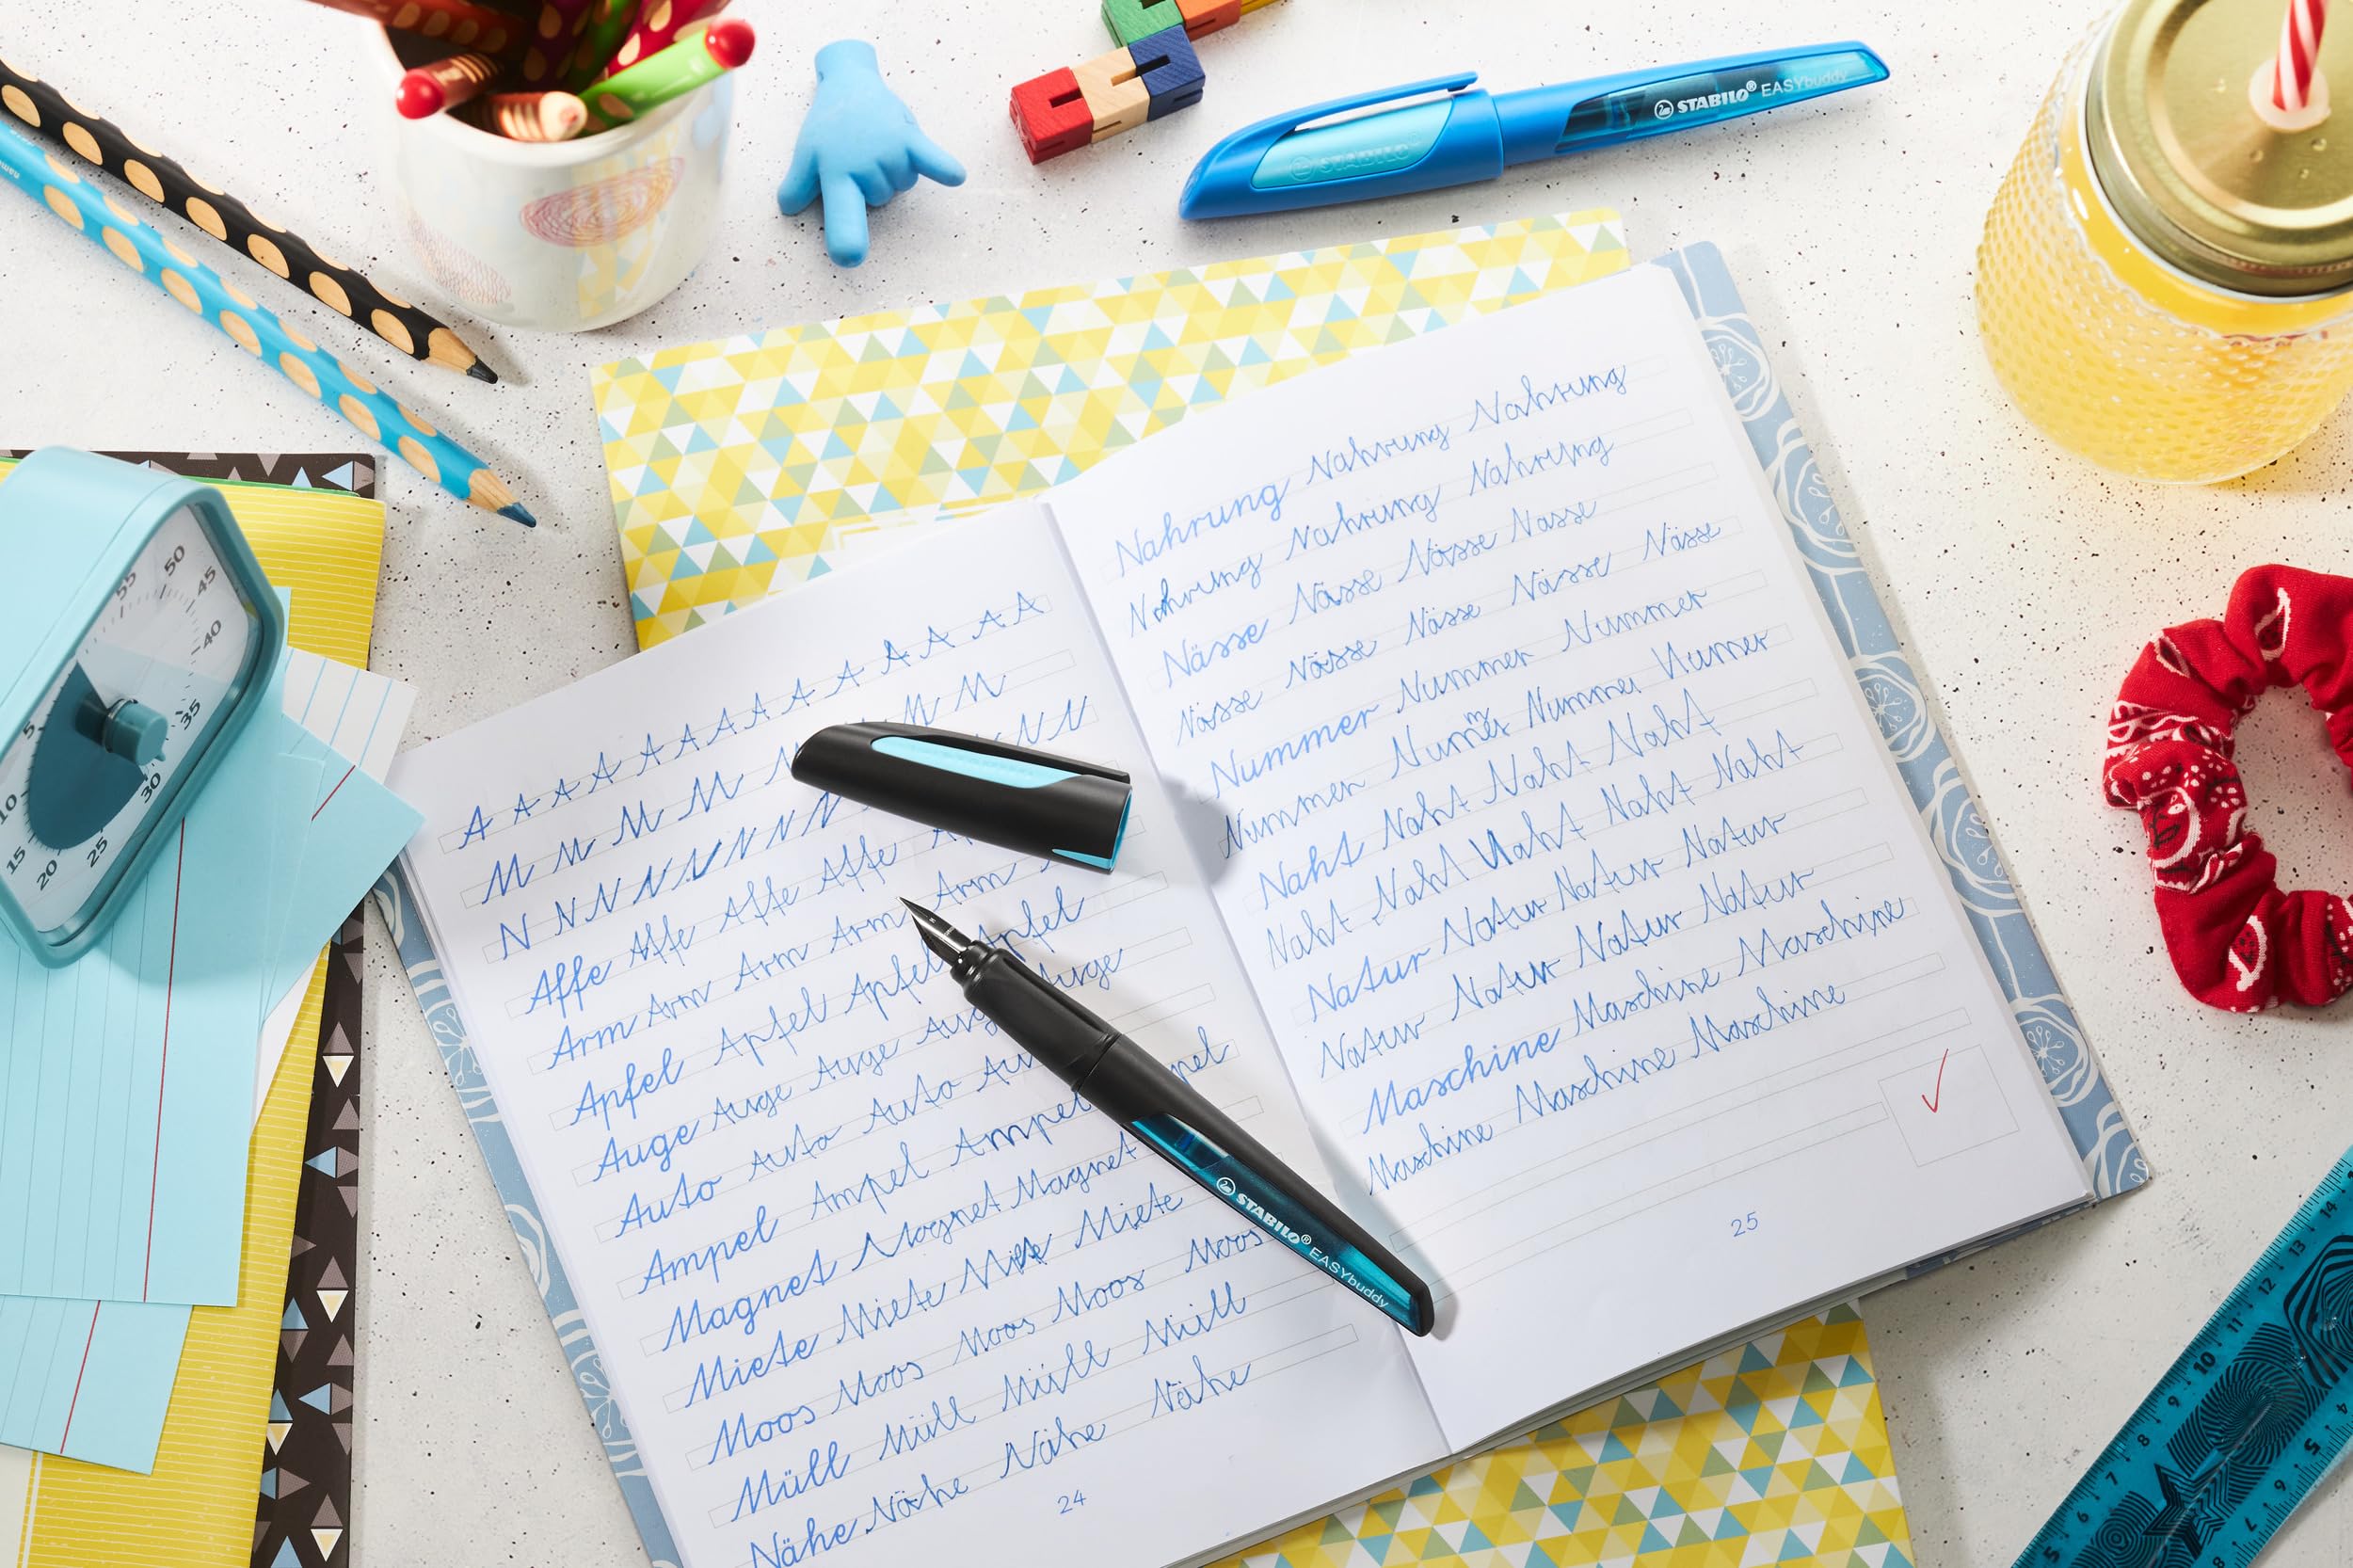 STABILO® EASYbuddy
STABILO®
55 50 45 40 35 30 25 20 15 10 5
A A A A A A A A A A A A A
M M M M M M M
N N N N N N N N N N
Affe Affe Affe Affe
Arm Arm Arm Arm Arm
Apfel Apfel Apfel Apfel
Auge Auge Auge Auge Auge
Auto Auto Auto
Ampel Ampel Ampel
Magnet Magnet Magnet
Miete Miete Miete Miete
Moos Moos Moos Moos
Müll Müll Müll Müll
Nähe Nähe Nähe Nähe
24
Nahrung Nahrung Nahrung
Nahrung Nahrung Nahrung
Nässe Nässe Nässe Nasse
Nässe Nässe Nässe Nässe Nässe
Nummer Nummer Nummer
Nummer Numer Nummer Numer
m
Naht Naht Naht Naht
Naht Naht Naht Naht Naht
Natur Natur Natur Natur
Natur Natur Natur Natur
Maschine Maschine Maschine
Maschine Maschine Maschine
25
STABILO® EASYbuddy
14 13 12 11 10 9 8 7 6 5